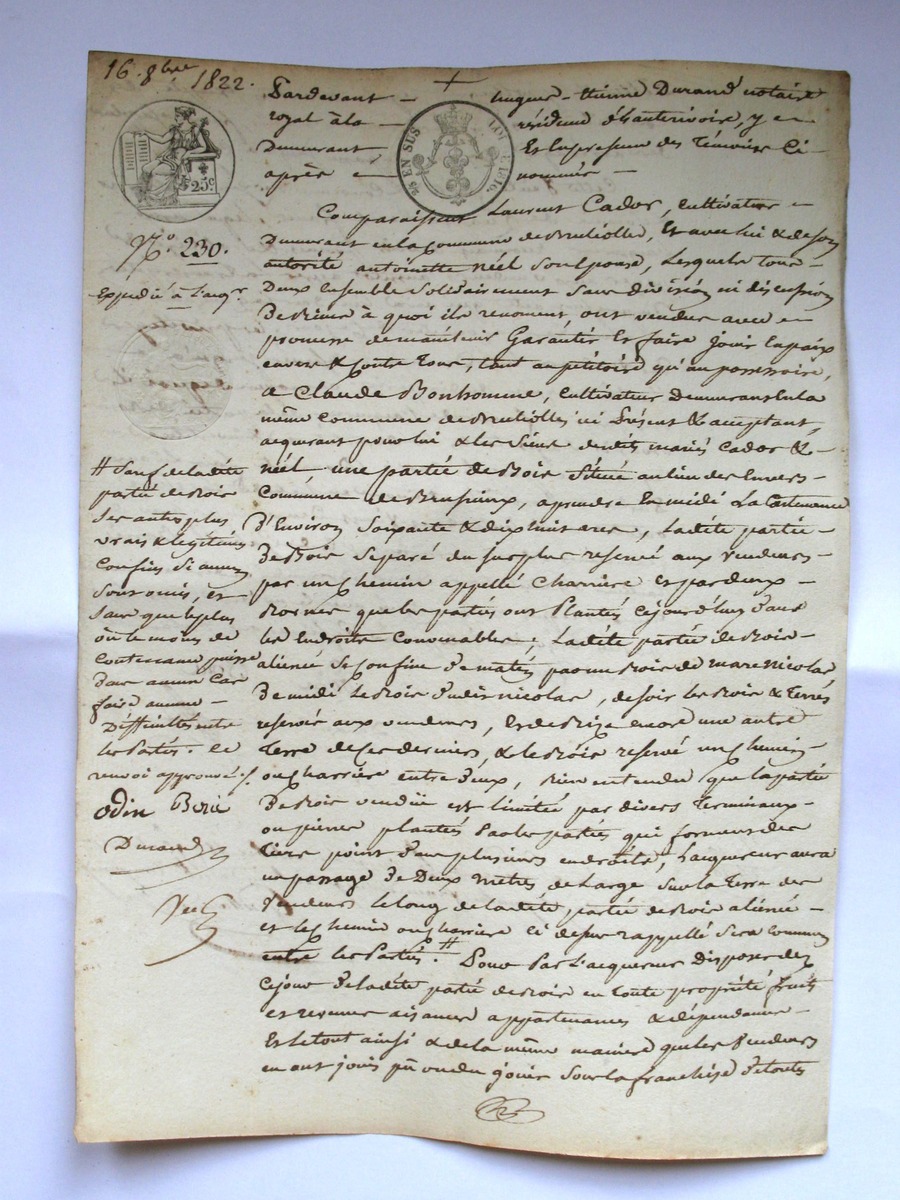 16 8bre 1822.
Pardevant hugues-Etienne Durand notaire
royal à la résidence d'hauterivoire, y
Demeurant Et en la presence des Témoins Ci
après nommés
25c
25 EN SUS LOI 1816.
N.° 230.
Expedié à l'acqr
Comparaissent Laurent Cador, Cultivateur
Demeurant en la Commune de Brulliolles, Et avec lui & de son
autorité antoinette néel Son Epouse, Lesquels Tous
Deux Ensemble Solidairement Sans division ni discussion
De Biens à quoi ils renoncent, ont vendu avec
promesse de maintenir Garantir Et faire Jouir En paix
envers & Contre Tous, tant au pétitoire qu'au possessoire,
a Claude Bonhomme, Cultivateur Demeurant En la
même Commune de Brulliolles ici Présent & acceptant,
acquerant pour lui & les Siens desdits mariés Cador &
néel une partie de Bois Située au lieu des Envers
Commune de Brussieux, a prendre En midi De la Contenance
D'Environ Soixante & dix huit ares, Ladite partie
De Bois separé du surplus reservé aux Vendeurs
par un Chemin appellé Charriere et par deux
Bornes que les parties ont Plantés Cejourd'huy dans
les Endroits Convenables; Ladite partie de Bois
aliené Se Confine De matin par un Bois de marc Nicolas
De midi Le Bois dudit nicolas, de soir les Bois & Terres
reservés aux vendeurs, Et de Bize encore une autre
Terre de Ces derniers, & le Bois reservé un Chemin
ou Charriere entre deux, Bien entendu que la partie
De Bois vendüe est limitée par divers Terminaux
ou pierres plantés par les parties qui forment des
tiers point dans plusieurs endroits, L'acquereur aura
un passage de Deux mètres de Large Sur la Terre des
Vendeurs le long de ladite partie de Bois aliéné
et le Chemin ou Charriere Ci dessus rappellé Sera Commun
entre les Parties. # Pour Par L'acquereur Disposer dez
Cejour De ladite partie de Bois en Toute propriété fruits
et revenus aisances appartenances & dépendances
Et le tout ainsi & de la même maniere que les Vendeurs
en ont joüis pû ou du joüir Sous la franchise de toutes
# Sauf de ladite
partie de Bois
Ses autres plus
vrais & legitimes
Confins Si aucun
Sont omis, et
Sans que le plus
ou le moins de
Contenance puisse
Dans aucun Cas
faire aucune
Difficultés entre
les Parties. Ce
renvoi approuvé ./.
odin
Durand